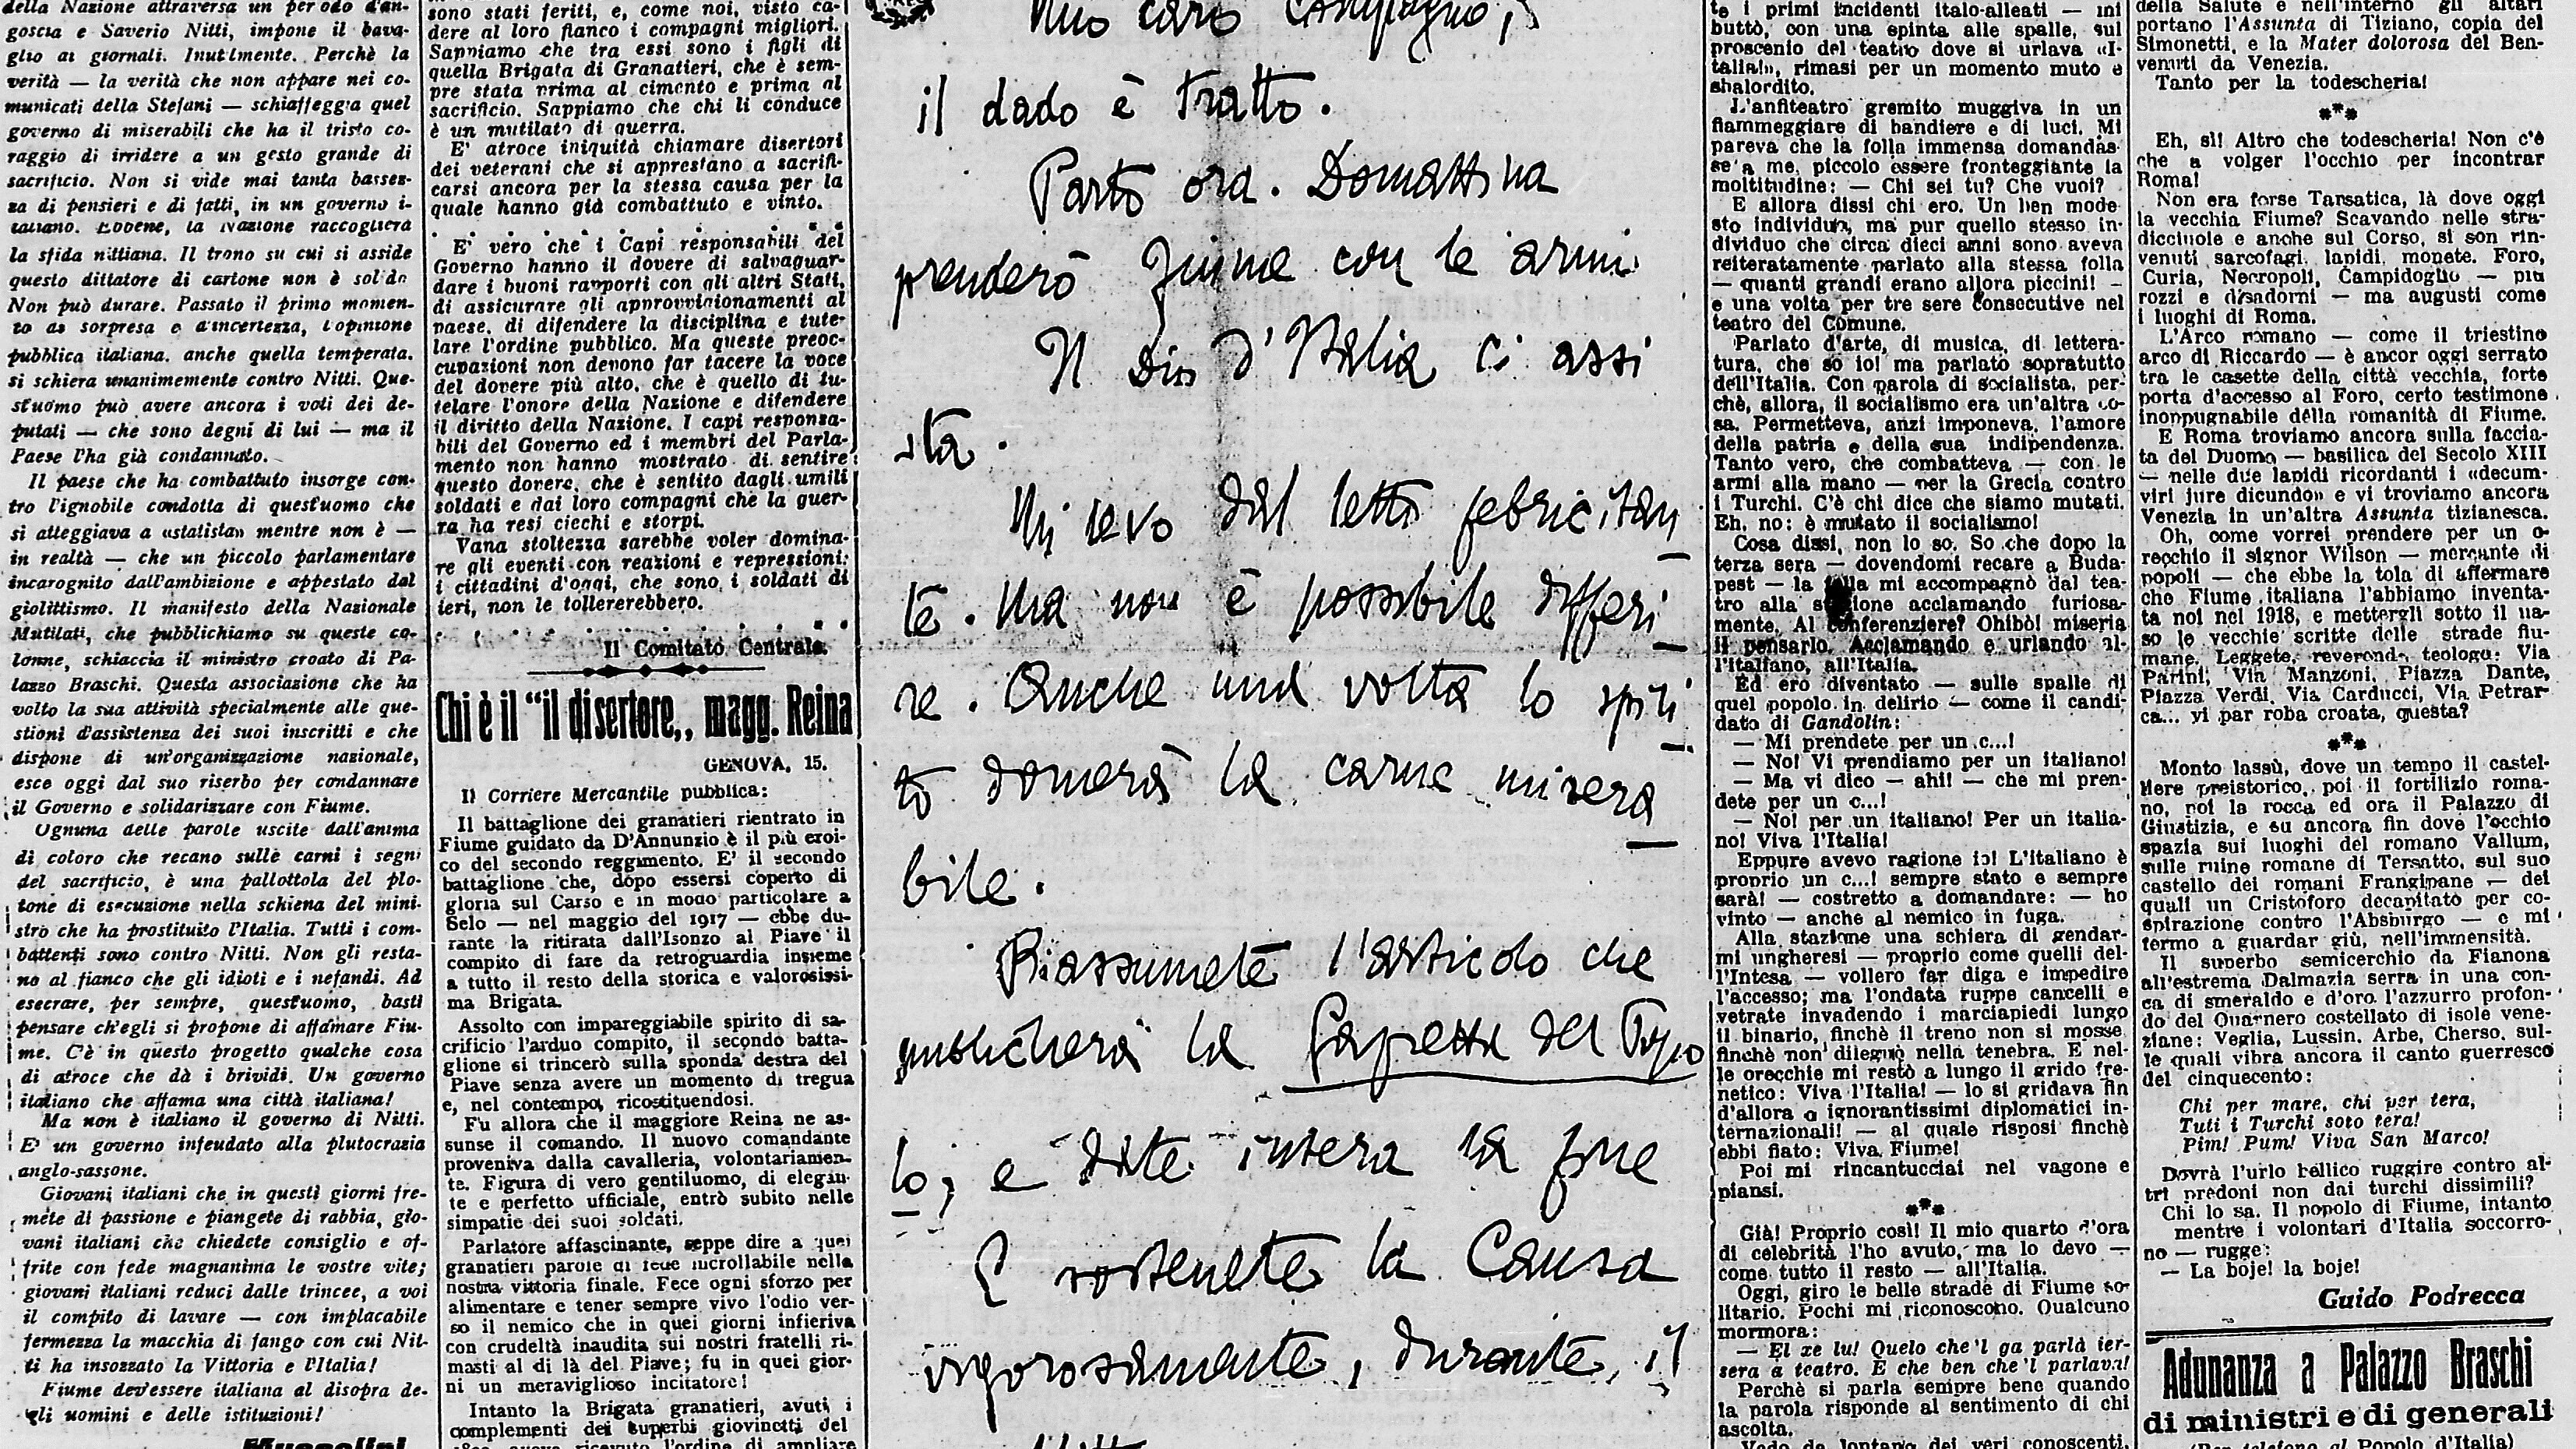 della Nazione attraversa un periodo d'an-
goscia e Saverio Nitti, impone il bava-
glio ai giornali. Inutilmente. Perchè la
verità — la verità che non appare nei co-
municati della Stefani — schiaffeggia quel
governo di miserabili che ha il tristo co-
raggio di irridere a un gesto grande di
sacrificio. Non si vide mai tanta bassez-
za di pensieri e di fatti, in un governo i-
taliano. Ebbene, la Nazione raccoglierà
la sfida nittiana. Il trono su cui si asside
questo dittatore di cartone non è solido
Non può durare. Passato il primo momen-
to di sorpresa e d'incertezza, l'opinione
pubblica italiana, anche quella temperata.
si schiera unanimemente contro Nitti. Que-
st'uomo può avere ancora i voti dei de-
putati — che sono degni di lui — ma il
Paese l'ha già condannato.
Il paese che ha combattuto insorge con-
tro l'ignobile condotta di quest'uomo che
si atteggiava a «statista» mentre non è —
in realtà — che un piccolo parlamentare
incarognito dall'ambizione e appestato dal
giolittismo. Il manifesto della Nazionale
Mutilati, che pubblichiamo su queste co-
lonne, schiaccia il ministro croato di Pa-
lazzo Braschi. Questa associazione che ha
volto la sua attività specialmente alle que-
stioni d'assistenza dei suoi inscritti e che
dispone di un'organizzazione nazionale,
esce oggi dal suo riserbo per condannare
il Governo e solidarizzare con Fiume.
Ognuna delle parole uscite dall'anima
di coloro che recano sulle carni i segni
del sacrificio, è una pallottola del plo-
tone di esecuzione nella schiena del mini-
stro che ha prostituito l'Italia. Tutti i com-
battenti sono contro Nitti. Non gli resta-
no al fianco che gli idioti e i nefandi. Ad
esecrare, per sempre, quest'uomo, basti
pensare ch'egli si propone di affamare Fiu-
me. C'è in questo progetto qualche cosa
di atroce che dà i brividi. Un governo
italiano che affama una città italiana!
Ma non è italiano il governo di Nitti.
E' un governo infeudato alla plutocrazia
anglo-sassone.
Giovani italiani che in questi giorni fre-
mete di passione e piangete di rabbia, gio-
vani italiani che chiedete consiglio e of-
frite con fede magnanima le vostre vite;
giovani italiani reduci dalle trincee, a voi
il compito di lavare — con implacabile
fermezza la macchia di fango con cui Nit-
ti ha insozzato la Vittoria e l'Italia!
Fiume dev'essere italiana al disopra de-
gli uomini e delle istituzioni!
Mussolini
sono stati feriti, e, come noi, visto ca-
dere al loro fianco i compagni migliori.
Sappiamo che tra essi sono i figli di
quella Brigata di Granatieri, che è sem-
pre stata prima al cimento e prima al
sacrificio. Sappiamo che chi li conduce
è un mutilato di guerra.
E' atroce iniquità chiamare disertori
dei veterani che si apprestano a sacrifi-
carsi ancora per la stessa causa per la
quale hanno già combattuto e vinto.
E' vero che i Capi responsabili del
Governo hanno il dovere di salvaguar-
dare i buoni rapporti con gli altri Stati,
di assicurare gli approvvigionamenti al
paese, di difendere la disciplina e tute-
lare l'ordine pubblico. Ma queste preoc-
cupazioni non devono far tacere la voce
del dovere più alto, che è quello di tu-
telare l'onore della Nazione e difendere
il diritto della Nazione. I capi responsa-
bili del Governo ed i membri del Parla-
mento non hanno mostrato di sentire
questo dovere, che è sentito dagli umili
soldati e dai loro compagni che la guer-
ra ha resi ciechi e storpi.
Vana stoltezza sarebbe voler domina-
re gli eventi con reazioni e repressioni:
i cittadini d'oggi, che sono i soldati di
ieri, non le tollererebbero.
Il Comitato Centrale.
Chi è il "il disertore,, magg. Reina
GENOVA, 15.
Il Corriere Mercantile pubblica:
Il battaglione dei granatieri rientrato in
Fiume guidato da D'Annunzio è il più eroi-
co del secondo reggimento. E' il secondo
battaglione che, dopo essersi coperto di
gloria sul Carso e in modo particolare a
Selo — nel maggio del 1917 — ebbe du-
rante la ritirata dall'Isonzo al Piave il
compito di fare da retroguardia insieme
a tutto il resto della storica e valorosissi-
ma Brigata.
Assolto con impareggiabile spirito di sa-
crificio l'arduo compito, il secondo batta-
glione si trincerò sulla sponda destra del
Piave senza avere un momento di tregua
e, nel contempo, ricostituendosi.
Fu allora che il maggiore Reina ne as-
sunse il comando. Il nuovo comandante
proveniva dalla cavalleria, volontariamen-
te. Figura di vero gentiluomo, di elegan-
te e perfetto ufficiale, entrò subito nelle
simpatie dei suoi soldati.
Parlatore affascinante, seppe dire a quei
granatieri parole di fede incrollabile nella
nostra vittoria finale. Fece ogni sforzo per
alimentare e tener sempre vivo l'odio ver-
so il nemico che in quei giorni infieriva
con crudeltà inaudita sui nostri fratelli ri-
masti al di là del Piave; fu in quei gior-
ni un meraviglioso incitatore!
Intanto la Brigata granatieri, avuti i
complementi dei superbi giovinetti del
ricevuto l'ordine di ampliare
Mio caro compagno,
il dado è tratto.
Parto ora. Domattina
prenderò Fiume con le armi.
Il Dio d'Italia ci assi
sta.
Mi levo dal letto febbricitan
te. Ma non è possibile differi
re. Anche una volta lo spiri
to domerà la carne misera
bile.
Riassumete l'articolo che
pubblicherà la Gazzetta del Popo
lo; e date intera la fine
E sostenete la Causa
vigorosamente, durante il
te i primi incidenti italo-alleati — mi
buttò, con una spinta alle spalle, sul
proscenio del teatro dove si urlava «I-
talia!», rimasi per un momento muto e
sbalordito.
L'anfiteatro gremito muggiva in un
fiammeggiare di bandiere e di luci. Mi
pareva che la folla immensa domandas-
se a me, piccolo essere fronteggiante la
moltitudine: — Chi sei tu? Che vuoi?
E allora dissi chi ero. Un ben mode-
sto individuo, ma pur quello stesso in-
dividuo che circa dieci anni sono aveva
reiteratamente parlato alla stessa folla
— quanti grandi erano allora piccini! —
e una volta per tre sere consecutive nel
teatro del Comune.
Parlato d'arte, di musica, di lettera-
tura, che so io! ma parlato sopratutto
dell'Italia. Con parola di socialista, per-
chè, allora, il socialismo era un'altra co-
sa. Permetteva, anzi imponeva, l'amore
della patria e della sua indipendenza.
Tanto vero, che combatteva — con le
armi alla mano — per la Grecia contro
i Turchi. C'è chi dice che siamo mutati.
Eh, no: è mutato il socialismo!
Cosa dissi, non lo so. So che dopo la
terza sera — dovendomi recare a Buda-
pest — la folla mi accompagnò dal tea-
tro alla stazione acclamando furiosa-
mente. Al conferenziere? Ohibò! miseria
il pensarlo. Acclamando e urlando al-
l'italiano, all'Italia.
Ed ero diventato — sulle spalle di
quel popolo in delirio — come il candi-
dato di Gandolin:
— Mi prendete per un c...!
— No! Vi prendiamo per un italiano!
— Ma vi dico — ahi! — che mi pren-
dete per un c...!
— No! per un italiano! Per un italia-
no! Viva l'Italia!
Eppure avevo ragione io! L'italiano è
proprio un c...! sempre stato e sempre
sarà! — costretto a domandare: — ho
vinto — anche al nemico in fuga.
Alla stazione una schiera di gendar-
mi ungheresi — proprio come quelli del-
l'Intesa — vollero far diga e impedire
l'accesso; ma l'ondata ruppe cancelli e
vetrate invadendo i marciapiedi lungo
il binario, finchè il treno non si mosse,
finchè non dileguò nella tenebra. E nel-
le orecchie mi restò a lungo il grido fre-
netico: Viva l'Italia! — lo si gridava fin
d'allora o ignorantissimi diplomatici in-
ternazionali! — al quale risposi finchè
ebbi fiato: Viva Fiume!
Poi mi rincantucciai nel vagone e
piansi.
***
Già! Proprio così! Il mio quarto d'ora
di celebrità l'ho avuto, ma lo devo —
come tutto il resto — all'Italia.
Oggi, giro le belle strade di Fiume so-
litario. Pochi mi riconoscono. Qualcuno
mormora:
— El xe lu! Quelo che'l ga parlà ter-
sera a teatro. E che ben che'l parlava!
Perchè si parla sempre bene quando
la parola risponde al sentimento di chi
ascolta.
Vedo da lontano dei veri conoscenti,
della Salute e nell'interno gli altari
portano l'Assunta di Tiziano, copia del
Simonetti, e la Mater dolorosa del Ben-
venuti da Venezia.
Tanto per la todescheria!
***
Eh, sì! Altro che todescheria! Non c'è
che a volger l'occhio per incontrar
Roma!
Non era forse Tarsatica, là dove oggi
la vecchia Fiume? Scavando nelle stra-
dicciuole e anche sul Corso, si son rin-
venuti sarcofagi, lapidi, monete. Foro,
Curia, Necropoli, Campidoglio — più
rozzi e disadorni — ma augusti come
i luoghi di Roma.
L'Arco romano — come il triestino
arco di Riccardo — è ancor oggi serrato
tra le casette della città vecchia, forte
porta d'accesso al Foro, certo testimone
inoppugnabile della romanità di Fiume.
E Roma troviamo ancora sulla faccia-
ta del Duomo — basilica del Secolo XIII
— nelle due lapidi ricordanti i «decum-
viri jure dicundo» e vi troviamo ancora
Venezia in un'altra Assunta tizianesca.
Oh, come vorrei prendere per un o-
recchio il signor Wilson — mercante di
popoli — che ebbe la tola di affermare
che Fiume italiana l'abbiamo inventa-
ta noi nel 1918, e mettergli sotto il na-
so le vecchie scritte delle strade fiu-
mane. Leggete, reverendo teologo: Via
Parini, Via Manzoni, Piazza Dante,
Piazza Verdi, Via Carducci, Via Petrar-
ca... vi par roba croata, questa?
***
Monto lassù, dove un tempo il castel-
liere preistorico, poi il fortilizio roma-
no, poi la rocca ed ora il Palazzo di
Giustizia, e su ancora fin dove l'occhio
spazia sui luoghi del romano Vallum,
sulle ruine romane di Tersatto, sul suo
castello dei romani Frangipane — dei
quali un Cristoforo decapitato per co-
spirazione contro l'Absburgo — e mi
fermo a guardar giù, nell'immensità.
Il superbo semicerchio da Fianona
all'estrema Dalmazia serra in una con-
ca di smeraldo e d'oro l'azzurro profon-
do del Quarnero costellato di isole vene-
ziane: Veglia, Lussin, Arbe, Cherso, sul-
le quali vibra ancora il canto guerresco
del cinquecento:
Chi per mare, chi per tera,
Tuti i Turchi soto tera!
Pim! Pum! Viva San Marco!
Dovrà l'urlo bellico ruggire contro al-
tri predoni non dai turchi dissimili?
Chi lo sa. Il popolo di Fiume, intanto
mentre i volontari d'Italia soccorro-
no — rugge:
— La boje! la boje!
Guido Podrecca
Adunanza a Palazzo Braschi
di ministri e di generali
(Per telefono al Popolo d'Italia)